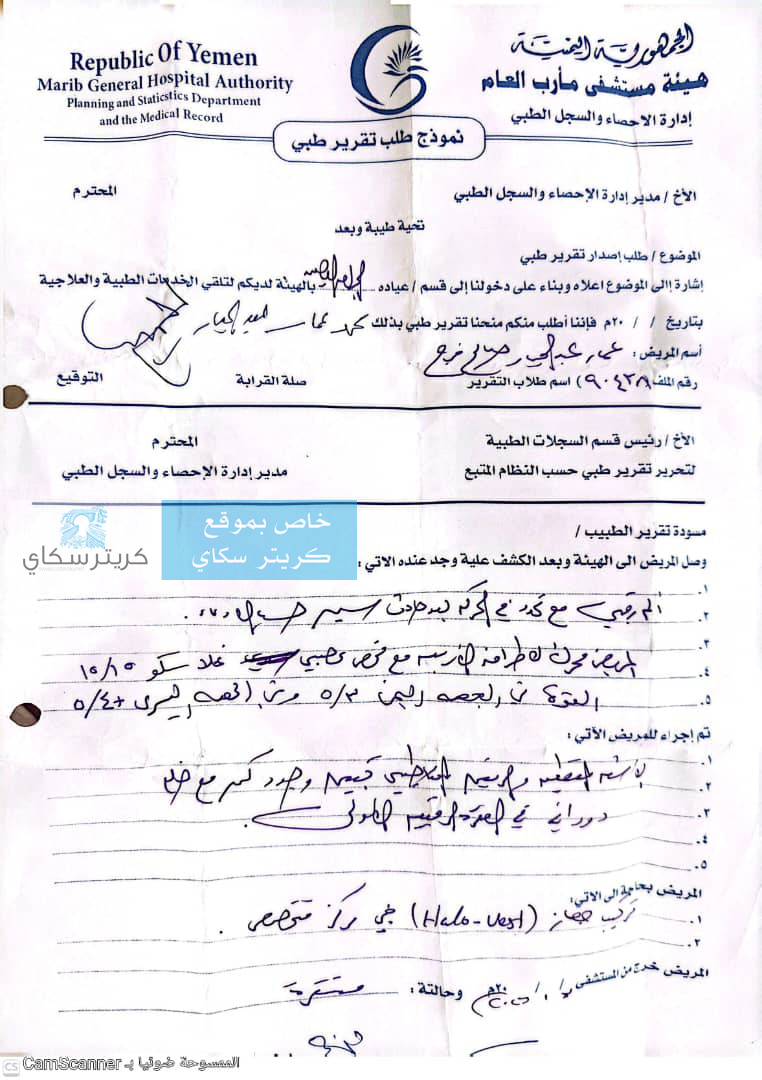 Republic Of Yemen
Marib General Hospital Authority
Planning and Staticstics Department
and the Medical Record
الجمهورية اليمنية
هيئة مستشفى مأرب العام
إدارة الاحصاء والسجل الطبي
نموذج طلب تقرير طبي
الأخ / مدير إدارة الإحصاء والسجل الطبي المحترم
تحية طيبة وبعد
الموضوع / طلب إصدار تقرير طبي
إشارة إالى الموضوع اعلاه وبناء على دخولنا إلى قسم / عياده بالهيئة لديكم لتلقي الخدمات الطبية والعلاجية
بتاريخ / / ٢٠م فإننا أطلب منكم منحنا تقرير طبي بذلك محمد عمار
أسم المريض : عمار صالح فرج
رقم الملف (٩٠٤٣٨) اسم طلاب التقرير صلة القرابة التوقيع
الأخ / رئيس قسم السجلات الطبية المحترم
لتحرير تقرير طبي حسب النظام المتبع مدير إدارة الإحصاء والسجل الطبي
خاص بموقع
كريتر سكاي
كريترسكاي
مسودة تقرير الطبيب /
وصل المريض الى الهيئة وبعد الكشف علية وجد عنده الاتي :
١.
٢. الم رقبي مع في الحركه بعد حادث سير
٣.
٤. المريض محرك لاطرافه الاربعه مع فحص عصبي غلاسكو ١٥/١٥
٥. القوة في الجهه اليمنى ٥/٣ وفي الجهه اليسرى +٥/٤
تم إجراء للمريض الآتي :
١.
٢. الاشعه المقطعيه والرنين المغناطيسي تبين وجود كسر مع خلع
٣. دوراني في الفقره الرقبيه الاولى.
٤.
٥.
المريض بحاجة الى الاتي:
١. تركيب جهاز (Halo-Vest) في مركز متخصص .
٢.
المريض خرج من المستشفى / / ٢٠م وحالتة : مستقرة
CS الممسوحة ضوئيا بـ CamScanner